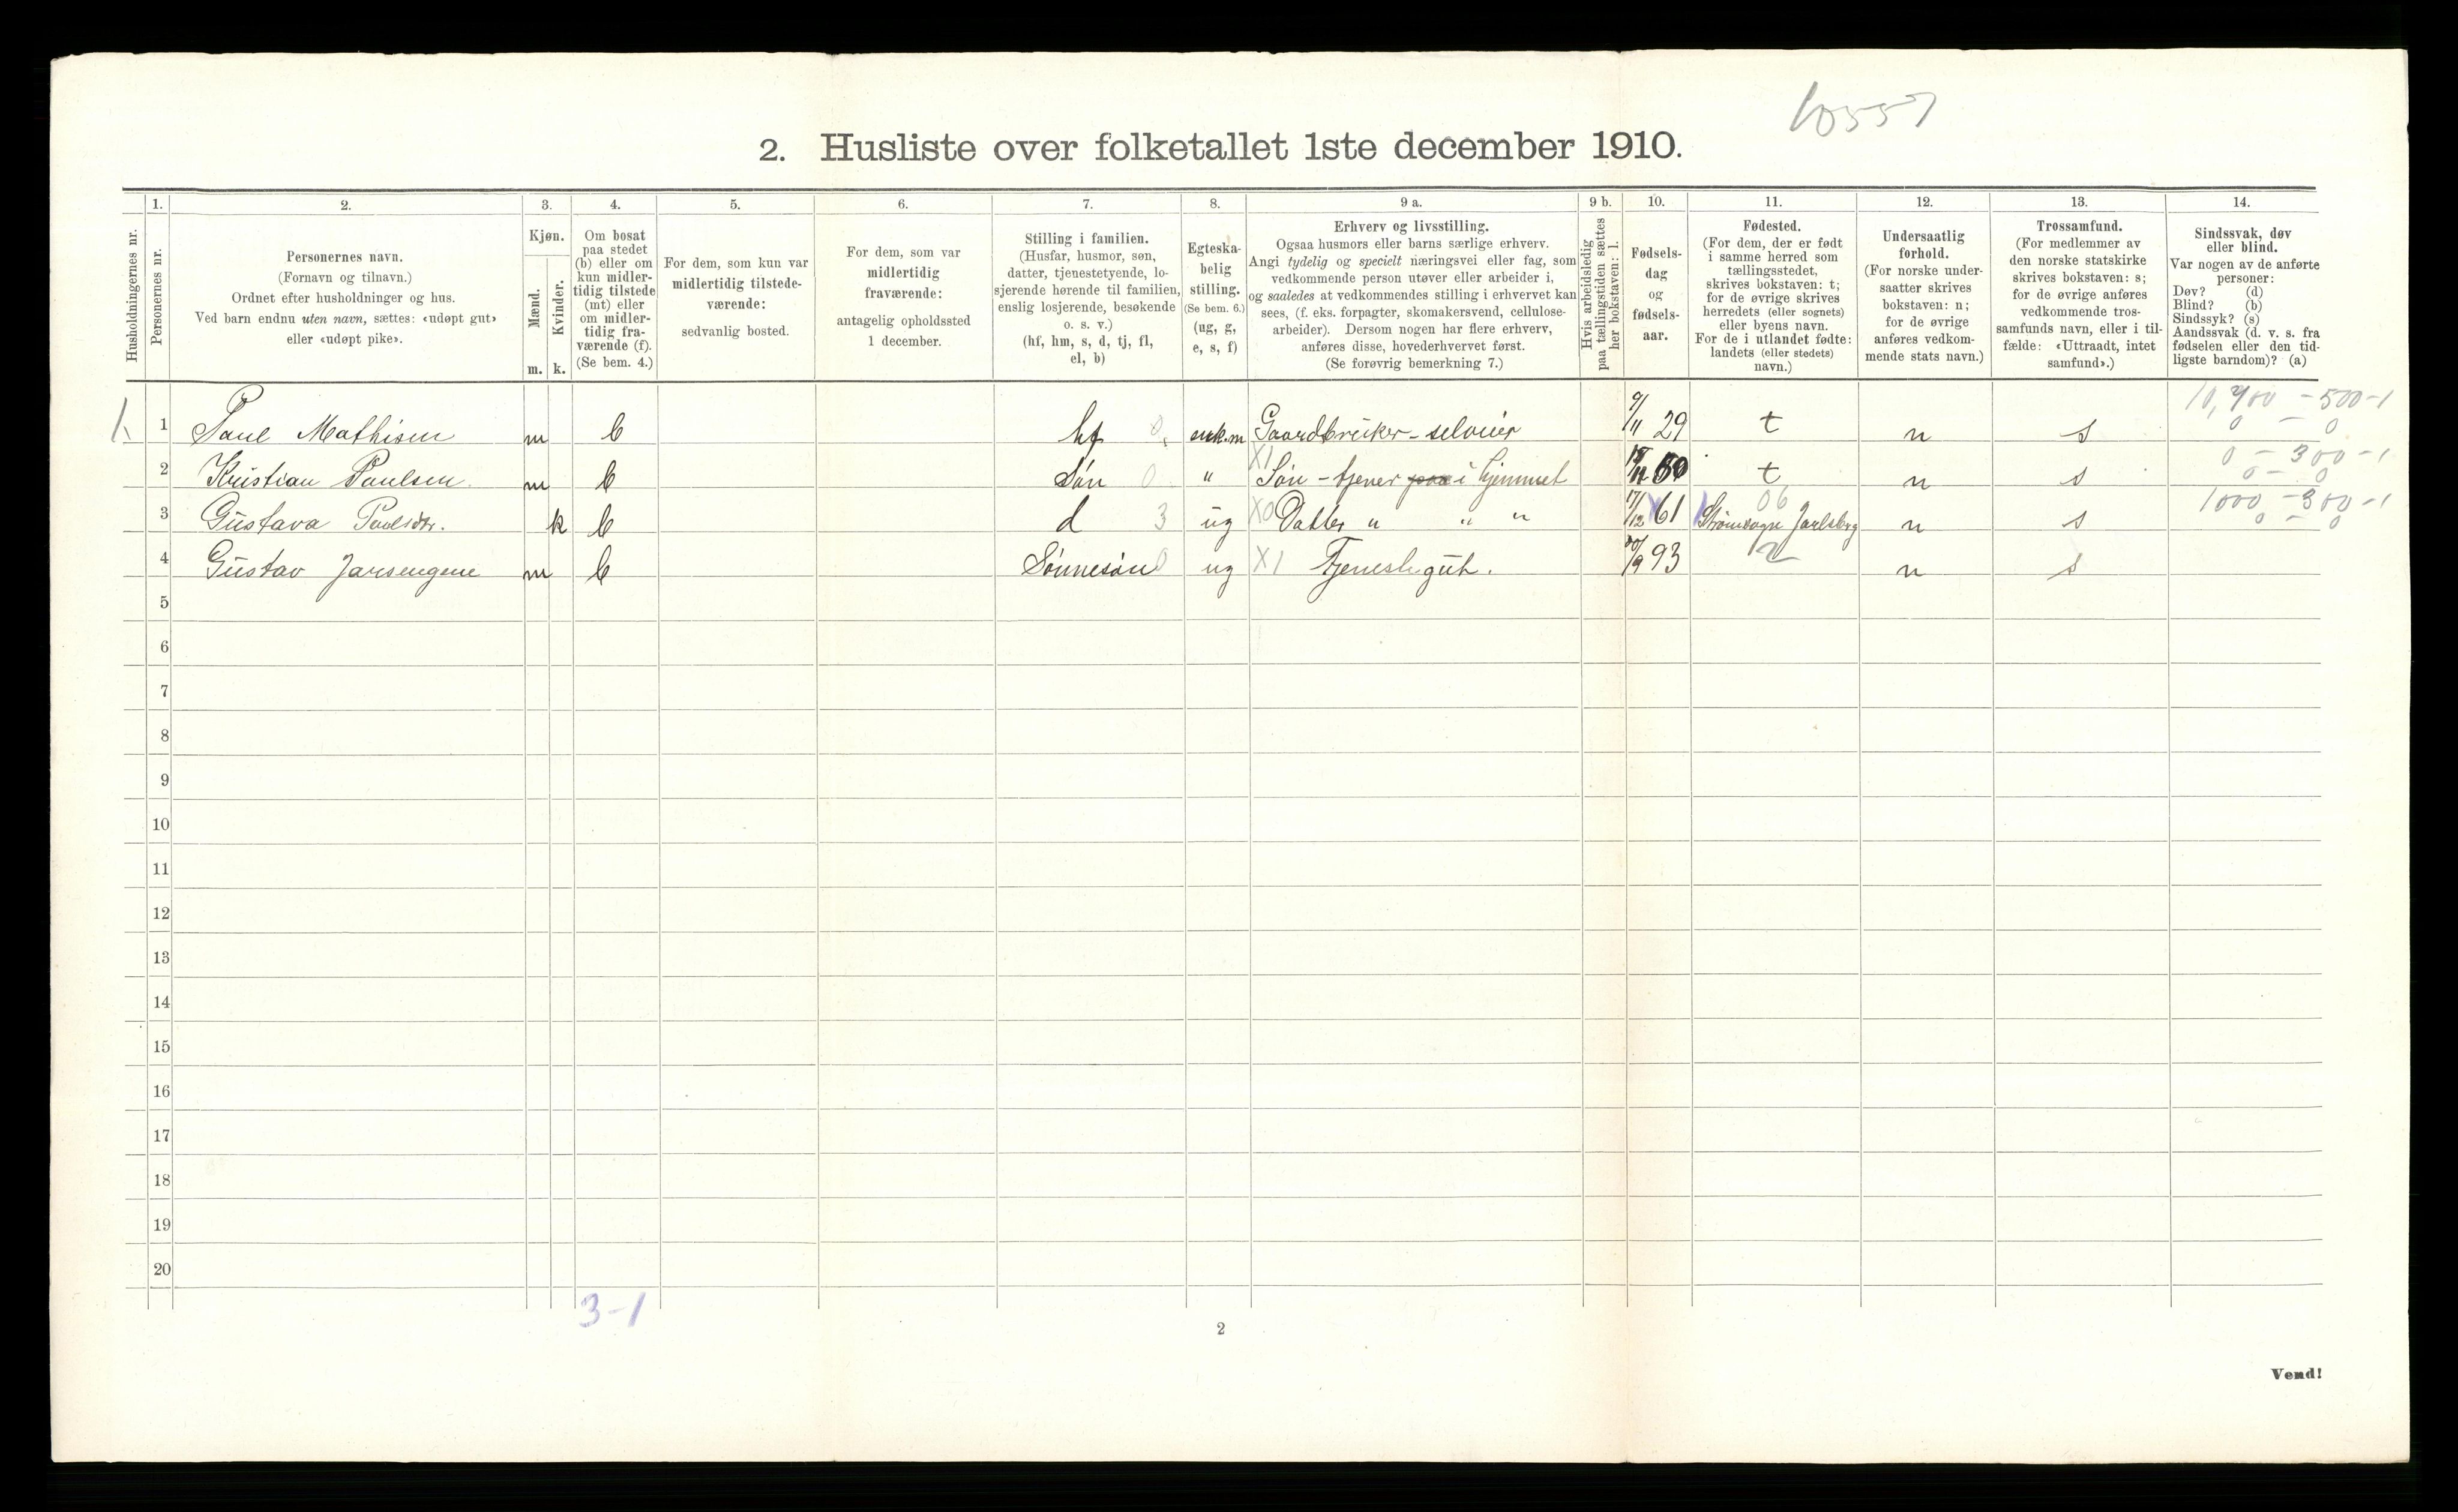 10557
2. Husliste over folketallet 1ste december 1910.
Husholdningernes nr.
1.
Personernes nr.
2.
Personernes navn.
(Fornavn og tilnavn.)
Ordnet efter husholdninger og hus.
Ved barn endnu uten navn, sættes: «udøpt gut»
eller «udøpt pike».
3.
Kjøn.
Mænd.
Kvinder.
m. k.
4.
Om bosat
paa stedet
(b) eller om
kun midler-
tidig tilstede
(mt) eller
om midler-
tidig fra-
værende (f).
(Se bem. 4.)
5.
For dem, som kun var
midlertidig tilstede-
værende:
sedvanlig bosted.
6.
For dem, som var
midlertidig
fraværende:
antagelig opholdssted
1 december.
7.
Stilling i familien.
(Husfar, husmor, søn,
datter, tjenestetyende, lo-
sjerende hørende til familien,
enslig losjerende, besøkende
o. s. v.)
(hf, hm, s, d, tj, fl,
el, b)
8.
Egteska-
belig
stilling.
(Se bem. 6.)
(ug, g,
e, s, f)
9 a.
Erhverv og livsstilling.
Ogsaa husmors eller barns særlige erhverv.
Angi tydelig og specielt næringsvei eller fag, som
vedkommende person utøver eller arbeider i,
og saaledes at vedkommendes stilling i erhvervet kan
sees, (f. eks. forpagter, skomakersvend, cellulose-
arbeider). Dersom nogen har flere erhverv,
anføres disse, hovederhvervet først.
(Se forøvrig bemerkning 7.)
9 b.
Hvis arbeidsledig
paa tællingstiden sættes
her bokstaven: l.
10.
Fødsels-
dag
og
fødsels-
aar.
11.
Fødested.
(For dem, der er født
i samme herred som
tællingsstedet,
skrives bokstaven: t;
for de øvrige skrives
herredets (eller sognets)
eller byens navn.
For de i utlandet fødte:
landets (eller stedets)
navn.)
12.
Undersaatlig
forhold.
(For norske under-
saatter skrives
bokstaven: n;
for de øvrige
anføres vedkom-
mende stats navn.)
13.
Trossamfund.
(For medlemmer av
den norske statskirke
skrives bokstaven: s;
for de øvrige anføres
vedkommende tros-
samfunds navn, eller i til-
fælde: «Uttraadt, intet
samfund».)
14.
Sindssvak, døv
eller blind.
Var nogen av de anførte
personer:
Døv? (d)
Blind? (b)
Sindssyk? (s)
Aandssvak (d. v. s. fra
fødselen eller den tid-
ligste barndom)? (a)
1. 1 Paul Mathisen m b hf 0 enk.m Gaardbruker - selveier 9/11 29 t n s 10,900 - 500-1 0 - 0
2 Kristian Paulsen m b Søn 0 " X1 Søn - tjener paa i hjemmet t n s 0 - 300 - 1 0 - 0
3 Gustava Paulsdtr. k b d 3 ug X0 Datter " " " 17/12 61 Strømsogn Jarlsberg 06 n s 1000 - 300 - 1 0 - 0
4 Gustav Jarsengene m b Sønnesøn 0 ug X1 Tjenestegut. /9 93 n s
5
6
7
8
9
10
11
12
13
14
15
16
17
18
19
20
3-1
2
Vend!